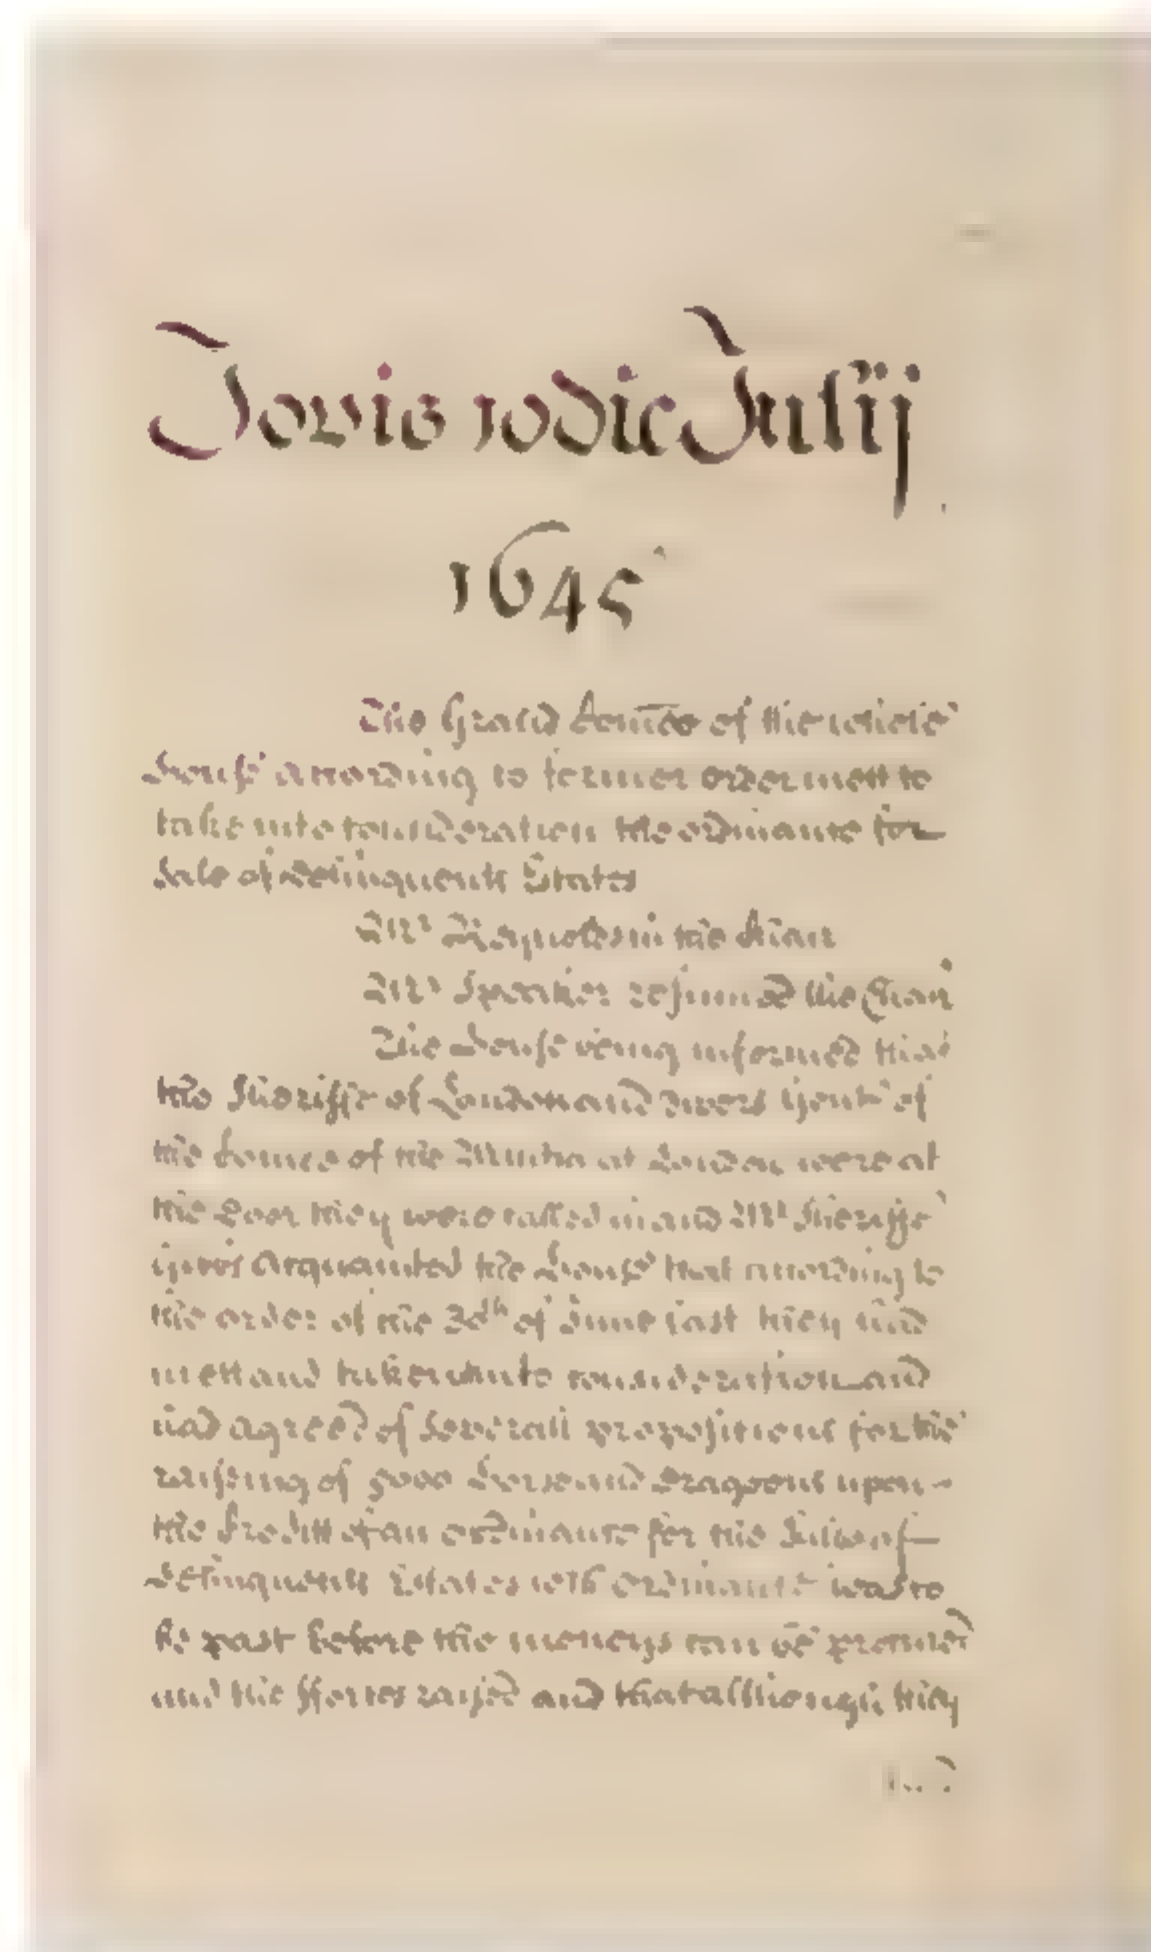 Jovis 10 die Julij
1645
The Grand Comtee of the whole
house according to former order mett to
take into consideration the ordinance for
Sale of delinquents Estates
Mr Reynolds in the Chair
Mr Speaker resumed the Chair
The House being informed that
the Sheriffe of London and divers Gentn of
the Comtee of the Militia at London were at
the Door they were called in and Mr Sheriffe
Gibbs Acquainted the House that according to
the order of the 30th of June last they had
mett and taken into consideration and
had agreed of Severall propositions for the
raising of horse and Dragoons upon
the Creditt of an ordinance for the Sale of
Delinquents Estates wch ordinance was to
be past before the moneys can be procured
and the fforces raysed and that although they
had